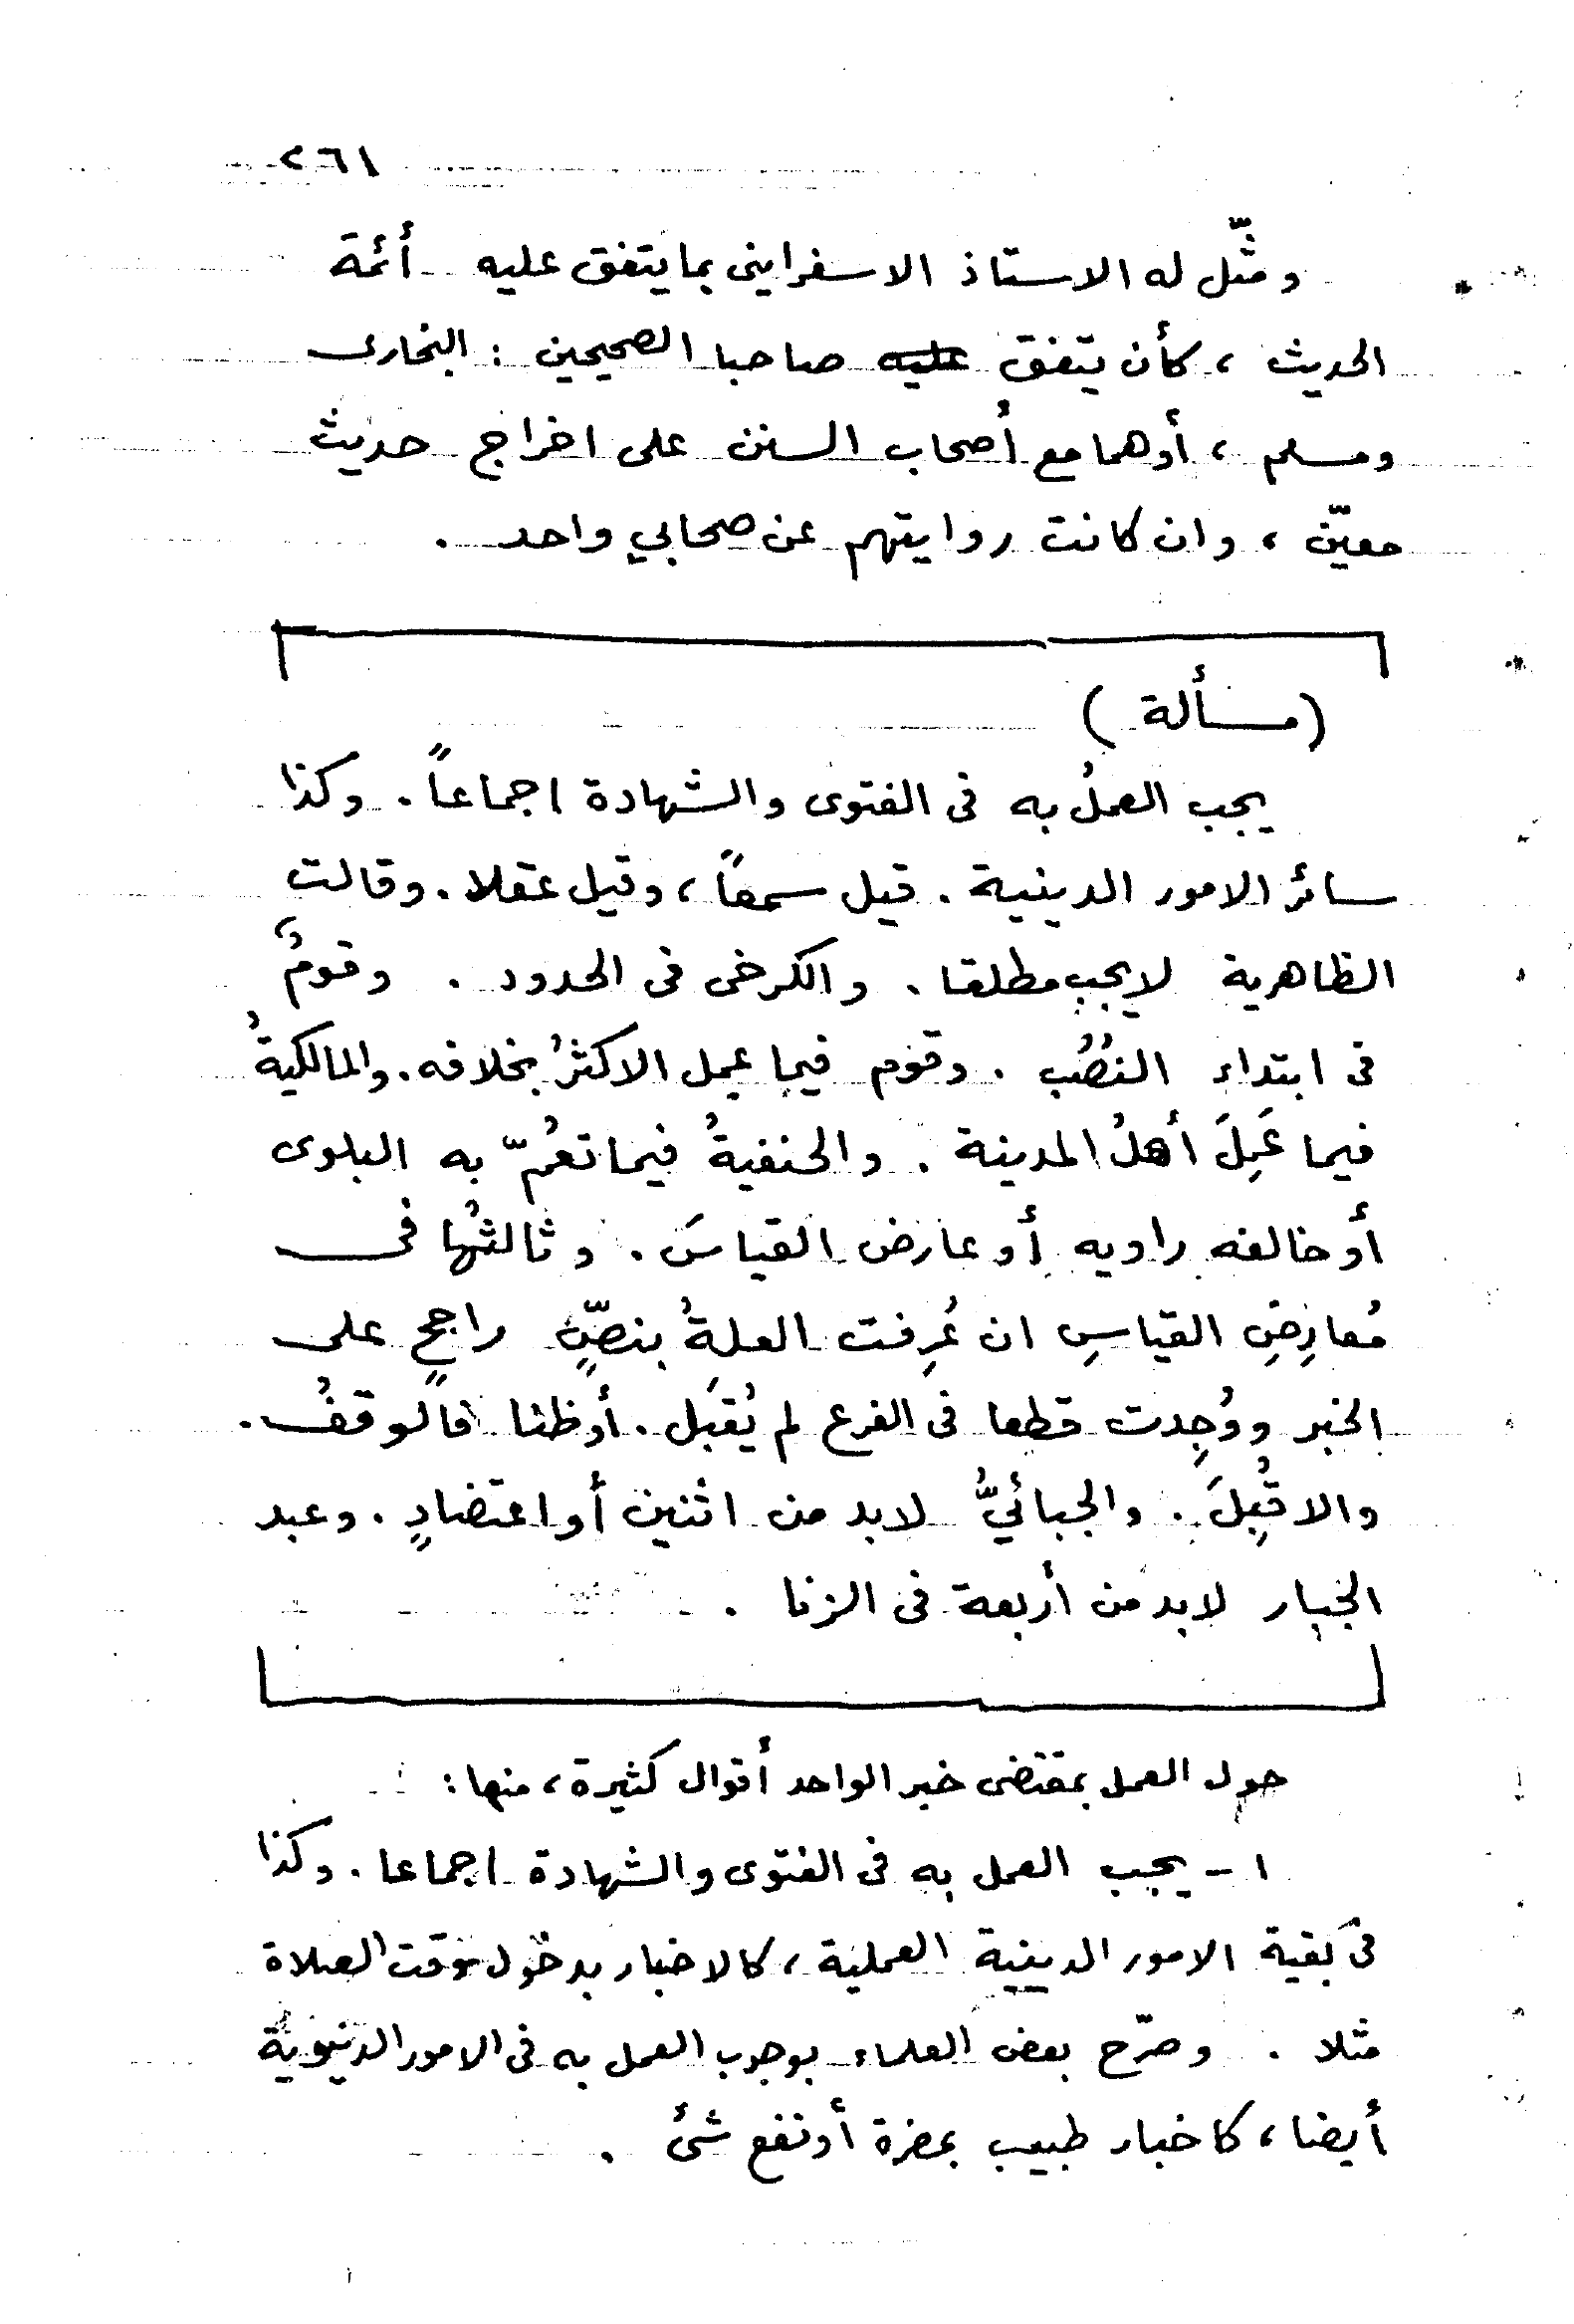 ٢٦١
ومثّل له الاستاذ الاسفرايني بما يتفق عليه أئمة
الحديث ، كأن يتفق عليه صاحبا الصحيحين : البخارى
ومسلم ، أو هما مع أصحاب السنن على اخراج حديث
معيّن ، وان كانت روايتهم عن صحابي واحد .
( مسألة )
يجب العملُ به فى الفتوى والشهادة اجماعاً . وكذا
سائر الامور الدينية . قيل سمعاً ، وقيل عقلا . وقالت
الظاهرية لا يجب مطلقا . والكرخى فى الحدود . وقومٌ
فى ابتداء النُصُب . وقوم فيما عمل الاكثرُ بخلافه . والمالكيةُ
فيما عَمِلَ أهلُ المدينة . والحنفيةُ فيما تعُمّ به البلوى
أو خالفه راويه أو عارض القياسَ . وثالثُها فى
مُعارِضِ القياسِ ان عُرِفت العلةُ بنصٍّ راجحٍ على
الخبر ووُجِدت قطعا فى الفرع لم يُقبَل . أو ظنا فالوقفُ .
والا قُبِلَ . والجبائيُّ لابد من اثنين أو اعتضادٍ . وعبد
الجبار لابد من أربعة فى الزنا .
حول العمل بمقتضى خبر الواحد أقوال كثيرة ، منها :
١ - يجب العمل به فى الفتوى والشهادة اجماعا . وكذا
فى بقية الامور الدينية العملية ، كالاخبار بدخول وقت الصلاة
مثلا . وصرّح بعض العلماء بوجوب العمل به فى الامور الدنيوية
أيضا ، كاخبار طبيب بمضرة أو نفع شئ .